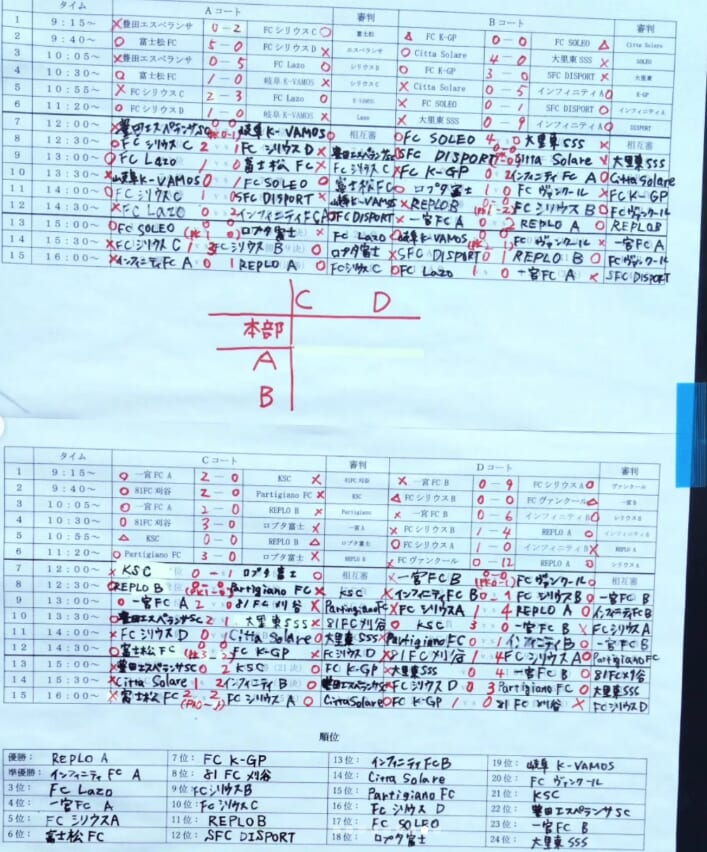 Aコート 審判 Bコート 審判
タイム
1 9:15～ ×豊田エスペランサ 0-2 FCシリウスC○ 富士松 △FC K-GP 0-0 FC SOLEO△ Citta Solare
2 9:40～ ○富士松FC 5-0 FCシリウスD× エスペランサ ○Citta Solare 4-0 大里東SSS× SOLEO
3 10:05～ ×豊田エスペランサ 0-5 FC Lazo○ シリウスD ○FC K-GP 3-0 SFC DISPORT× 大里東
4 10:30～ ○富士松FC 1-0 岐阜K-VAMOS× シリウスC ×Citta Solare 0-5 インフィニティA○ K-GP
5 10:55～ ×FCシリウスC 2-3 FC Lazo○ K-VAMOS ×FC SOLEO 0-1 SFC DISPORT○ インフィニティA
6 11:20～ ○FCシリウスD 1-0 岐阜K-VAMOS× Lazo ×大里東SSS 0-9 インフィニティA○ DISPORT
7 12:00～ ×豊田エスペランサSC 0-0 (PK0-1) 岐阜K-VAMOS○ 相互審 ○FC SOLEO 4-0 大里東SSS 相互審
8 12:30～ ○FCシリウスC 2 1 FCシリウスD× 豊田エスペランサSC ○SFC DISPORT 0-0 Citta Solare× 大里東SSS
9 13:00～ ○FC Lazo 1 富士松FC× FCシリウスC ×FC K-GP 0 2 インフィニティFC A○ Citta Solare
10 13:30～ ×岐阜K-VAMOS 0 1 FC SOLEO○ 富士松FC ○ロプタ富士 1 0 FCヴァンクール× FC K-GP
11 14:00～ ○FCシリウスC 1 0 SFC DISPORT× 岐阜K-VAMOS ×REPLO B 0-0 (PK1-2) FCシリウスB○ FCヴァンクール
12 14:30～ ×FC Lazo 0 2 インフィニティFC A○ SFC DISPORT ×一宮FC A 0 2 REPLO A○ REPLO B
13 15:00～ ○FC SOLEO ロプタ富士× FC Lazo ○岐阜K-VAMOS FCヴァンクール× 一宮FC A
14 15:30～ ×FCシリウスC 1 3 FCシリウスB○ ロプタ富士 ×SFC DISPORT 0 1 REPLO B○ FCヴァンクール
15 16:00～ ×インフィニティA 0 1 REPLO A○ FCシリウスC ○FC Lazo 1 0 一宮FC A× SFC DISPORT
C D
本部
A
B
タイム Cコート 審判 Dコート 審判
1 9:15～ ○一宮FC A 2-0 KSC× 81FC刈谷 ×一宮FC B 0-9 FCシリウスA○ ヴァンクール
2 9:40～ ○81FC刈谷 2-0 Partigiano FC× KSC △FCシリウスB 0-0 FCヴァンクール△ 一宮B
3 10:05～ ○一宮FC A 2-0 REPLO B× Partigiano ×一宮FC B 0-6 インフィニティB○ シリウスB
4 10:30～ ○81FC刈谷 3-0 ロプタ富士× 一宮A ×FCシリウスB 1-4 REPLO A○ インフィニティB
5 10:55～ △KSC 0-0 REPLO B△ ロプタ富士 ○FCシリウスA 1-0 インフィニティB× REPLO A
6 11:20～ ○Partigiano FC 3-0 ロプタ富士× REPLO B ×FCヴァンクール 0-12 REPLO A○ シリウスA
7 12:00～ ×KSC 0-1 ロプタ富士○ 相互審 ×一宮FC B 0-0 (PK0-1) FCヴァンクール○ 相互審
8 12:30～ ○REPLO B 0-0 (PK1-0) Partigiano FC× KSC ×インフィニティFC B 0-1 FCシリウスB○ 一宮FC B
9 13:00～ ○一宮FC A 2 0 81FC刈谷× Partingiano FC ×FCシリウスA 1 4 REPLO A○ インフィニティFC B
10 13:30～ ○豊田エスペランサSC 2 1 大里東SSS× 81FC刈谷 ○KSC 3 0 一宮FC B× FCシリウスA
11 14:00～ ×FCシリウスD 0 Citta Solare○ 大里東SSS ×Partigiano FC 0 1 インフィニティB○ 一宮FC B
12 14:30～ ○富士松FC FC K-GP× FCシリウスD ×81FC刈谷 1 4 FCシリウスA○ Partigiano FC
13 15:00～ ×豊田エスペランサSC 0 2 KSC○ FC K-GP ×大里東SSS 0 4 一宮FC B○ 81FC刈谷
14 15:30～ ×Citta Solare 1 2 インフィニティB○ 豊田エスペランサSC ×FCシリウスD 0 3 Partigiano FC○ 大里東SSS
15 16:00～ ×富士松FC 2-2 FCシリウスA○ Citta Solare ○FC K-GP 1 0 81FC刈谷× FCシリウスD
順位
優勝： REPLO A 7位： FC K-GP 13位： インフィニティFC B 19位： 岐阜K-VAMOS
準優勝： インフィニティFC A 8位： 81FC刈谷 14位： Citta Solare 20位： FCヴァンクール
3位： FC Lazo 9位： FCシリウスB 15位： Partigiano FC 21位： KSC
4位： 一宮FC A 10位： FCシリウスC 16位： FCシリウスD 22位： 豊田エスペランサSC
5位： FCシリウスA 11位： REPLO B 17位： FC SOLEO 23位： 一宮FC B
6位： 富士松FC 12位： SFC DISPORT 18位： ロプタ富士 24位： 大里東SSS